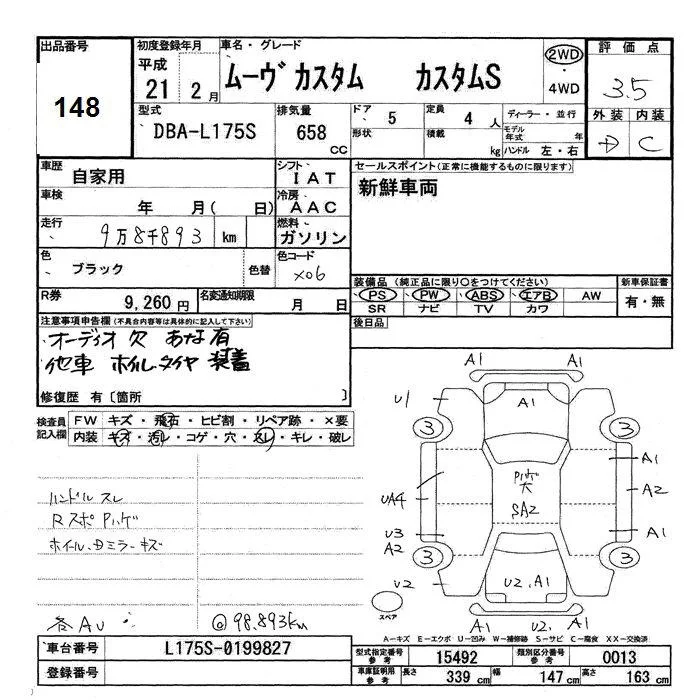 出品番号
148
初度登録年月
平成
21 2月
車名・グレード
ムーヴカスタム カスタムS
2WD
・
4WD
評価点
3.5
外装 内装
D C
型式
DBA-L175S
排気量
658
CC
ドア
5
形状
定員
4 人
積載
kg
ディーラー・並行
モデル年式 年
ハンドル 左・右
車歴
自家用
シフト
I A T
車検
年 月( 日)
冷房
A A C
走行
9万8千893 km
燃料
ガソリン
色
ブラック
色替
色コード
X06
R券
9,260円
名変通知期限
月 日
セールスポイント(正常に機能するものに限ります)
新鮮車両
装備品 (純正品に限り○をつけてください)
PS PW ABS エアB AW
SR ナビ TV カワ
新車保証書
有・無
後日品
注意事項申告欄(不具合内容等は具体的に記入して下さい)
オーディオ欠 あな有
他車 ホイルタイヤ 装着
修復歴 有〔箇所 〕
検査員記入欄
FW キズ・飛石・ヒビ割・リペア跡・×要
内装 キズ・汚レ・コゲ・穴・スレ・キレ・破レ
ハンドルスレ
Rスポハゲ
ホイール、Dミラーキズ
各AU
@98.893km
A1 A1
A1
U1
3 3
A1
UA4
ハゲ
大
SA2
A2
U3
A2
A1
3 3
U2
U2、A1
スペア
A1 U2、A1
A-キズ E-エクボ U-凹み W-補修跡 S-サビ C-腐食 XX-交換済
車台番号
L175S-0199827
登録番号
型式指定番号
参考
15492
類別区分番号
参考
0013
車庫証明用
参考
長さ
339 cm
幅
147 cm
高さ
163 cm